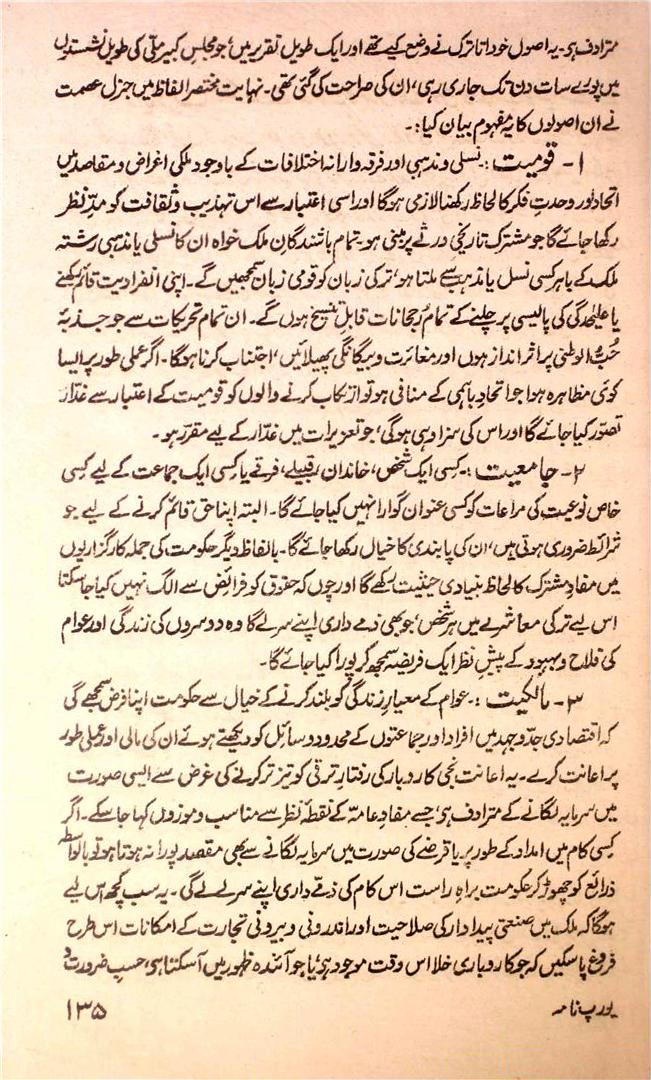 مترادف ہی۔ یہ اصول خود اتاترک نے وضع کیے تھے اور ایک طویل تقریر میں، جو مجلسِ کبیر ملّی کی طویل نشستوں
میں پورے سات دن تک جاری رہی، ان کی صراحت کی گئی تھی۔ نہایت مختصر الفاظ میں جنرل عصمت
نے ان اصولوں کا یہ مفہوم بیان کیا:۔
۱۔ قومیت:۔ نسلی و مذہبی اور فرقہ وارانہ اختلافات کے باوجود ملکی اغراض و مقاصد میں
اتحاد اور وحدتِ فکر کا لحاظ رکھنا لازمی ہوگا اور اسی اعتبار سے اس تہذیب و ثقافت کو مدِّ نظر
رکھا جائے گا جو مشترک تاریخی ورثے پر مبنی ہو۔ تمام باشندگانِ ملک خواہ ان کا نسلی یا مذہبی رشتہ
ملک کے باہر کسی نسل یا مذہب سے ملتا ہو، ترکی زبان کو قومی زبان سمجھیں گے۔ اپنی انفرادیت قائم رکھنے
یا علیٰحدگی کی پالیسی پر چلنے کے تمام رجحانات قابلِ تنسیخ ہوں گے۔ ان تمام تحریکات سے جو جذبۂ
حُبّ الوطنی پر اثر انداز ہوں اور مغائرت و بیگانگی پھیلائیں، اجتناب کرنا ہوگا۔ اگر عملی طور پر ایسا
کوئی مظاہرہ ہوا جو اتحادِ باہمی کے منافی ہو تو ارتکاب کرنے والوں کو قومیت کے اعتبار سے غدّار
تصوّر کیا جائے گا اور اس کی سزا وہی ہوگی، جو تعزیرات میں غدّار کے لیے مقرّر ہو۔
۲۔ جامعیت:۔ کسی ایک شخص، خاندان، قبیلے، فرقے یا کسی ایک جماعت کے لیے کسی
خاص نوعیت کی مراعات کو کسی عنوان گوارا نہیں کیا جائے گا۔ البتہ اپنا حق قائم کرنے کے لیے جو
شرائط ضروری ہوتی ہیں، ان کی پابندی کا خیال رکھا جائے گا۔ بالفاظِ دیگر حکومت کی جملہ کارگزاریوں
میں مفادِ مشترک کا لحاظ بنیادی حیثیت رکھے گا اور چوں کہ حقوق کو فرائض سے الگ نہیں کیا جاسکتا
اس لیے ترکی معاشرے میں ہر شخص، جو بھی ذمے داری اپنے سر لے گا وہ دوسروں کی زندگی اور عوام
کی فلاح و بہبود کے پیشِ نظر ایک فریضہ سمجھ کر پورا کیا جائے گا۔
۳۔ مالکیت:۔ عوام کے معیارِ زندگی کو بلند کرنے کے خیال سے حکومت اپنا فرض سمجھے گی
کہ اقتصادی جدّ و جہد میں افراد اور جماعتوں کے محدود وسائل کو دیکھتے ہوئے ان کی مالی اور عملی طور
پر اعانت کرے۔ یہ اعانت نجی کاروبار کی رفتارِ ترقی کو تیز تر کرنے کی غرض سے ایسی صورت
میں سرمایہ لگانے کے مترادف ہی، جسے مفادِ عامّہ کے نقطۂ نظر سے مناسب و موزوں کہا جاسکے۔ اگر
کسی کام میں امداد کے طور پر یا قرضے کی صورت میں سرمایہ لگانے سے بھی مقصد پورا نہ ہوتا ہو تو بالواسطہ
ذرائع کو چھوڑ کر حکومت براہِ راست اس کام کی ذمّے داری اپنے سر لے لے گی۔ یہ سب کچھ اس لیے
ہوگا کہ ملک میں صنعتی پیداوار کی صلاحیت اور اندرونی و بیرونی تجارت کے امکانات اس طرح
فروغ پاسکیں کہ جو کاروباری خلا اس وقت موجود ہی، یا جو آئندہ ظہور میں آسکتا ہی، حسبِ ضرورت و
یورپ نامہ
۱۳۵